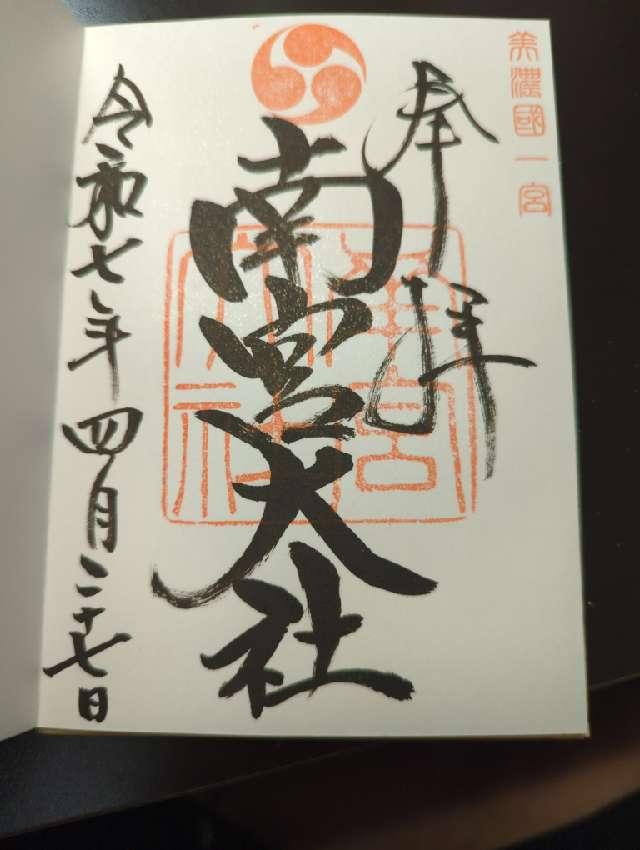 美濃國一宮
奉拝
南宮大社
南宮大社
令和七年四月二十七日